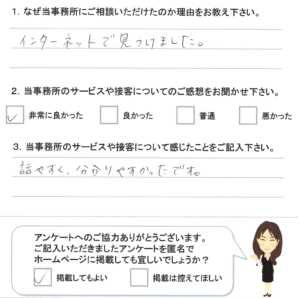 1. なぜ当事務所にご相談いただけたのか理由をお教え下さい。
インターネットで見つけました。
2. 当事務所のサービスや接客についてのご感想をお聞かせ下さい。
非常に良かった 良かった 普通 悪かった
3. 当事務所のサービスや接客について感じたことをご記入下さい。
話やすく、分かりやすかったです。
アンケートへのご協力ありがとうございます。
ご記入いただきましたアンケートを匿名で
ホームページに掲載しても宜しいでしょうか？
掲載してもよい 掲載は控えてほしい